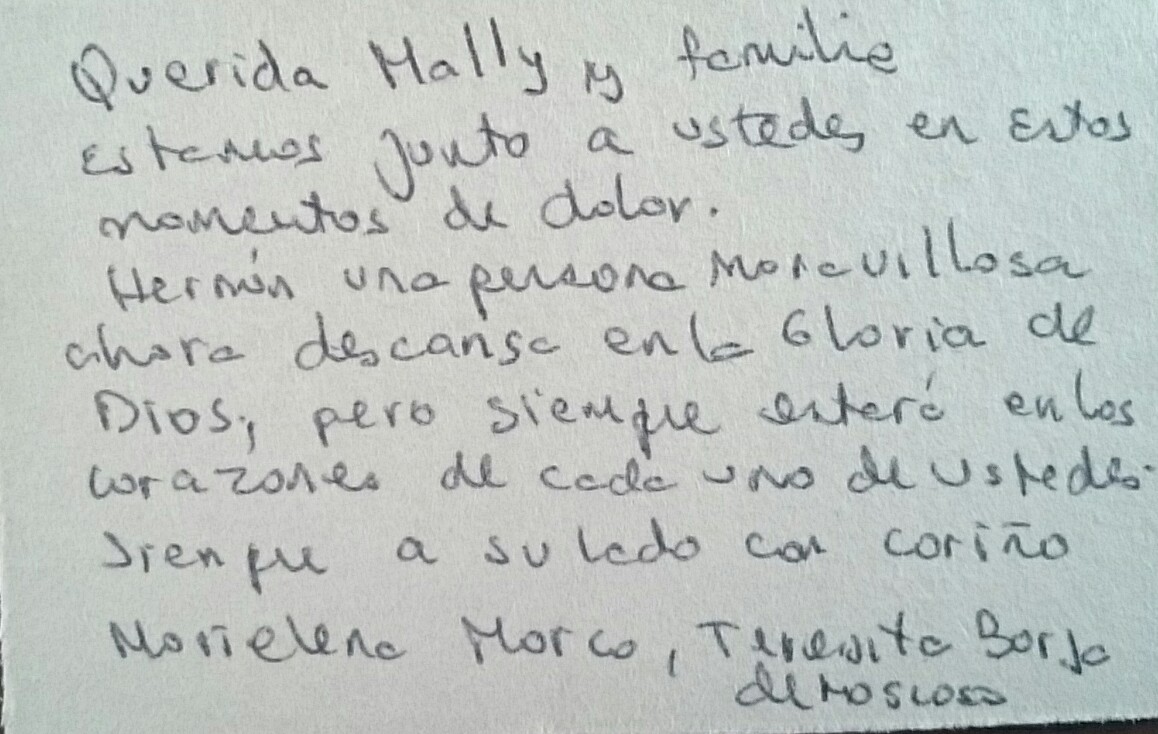 Querida Mally y familia
estamos junto a ustedes en estos
momentos de dolor.
Hernán una persona maravillosa
ahora descansa en la Gloria de
Dios, pero siempre estará en los
corazones de cada uno de ustedes.
Siempre a su lado con cariño
Marielena Marco, Teresita Borja
de Moscoso